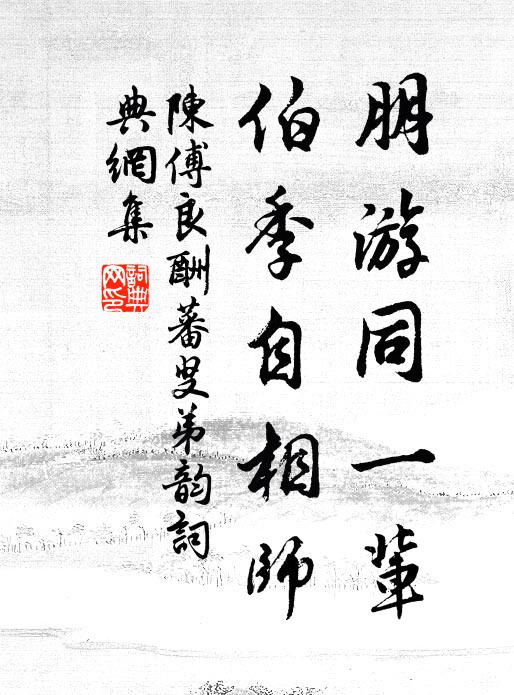 朋游同一輩
伯季自相師
陳傅良酬蕃叟弟韵詞
典網集
詞典
网印